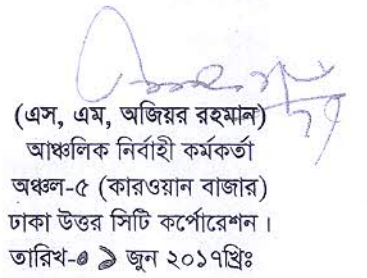 (এস, এম, অজিয়র রহমান)
আঞ্চলিক নির্বাহী কর্মকর্তা
অঞ্চল-৫ (কারওয়ান বাজার)
ঢাকা উত্তর সিটি কর্পোরেশন।
তারিখ-০১ জুন ২০১৭খ্রিঃ